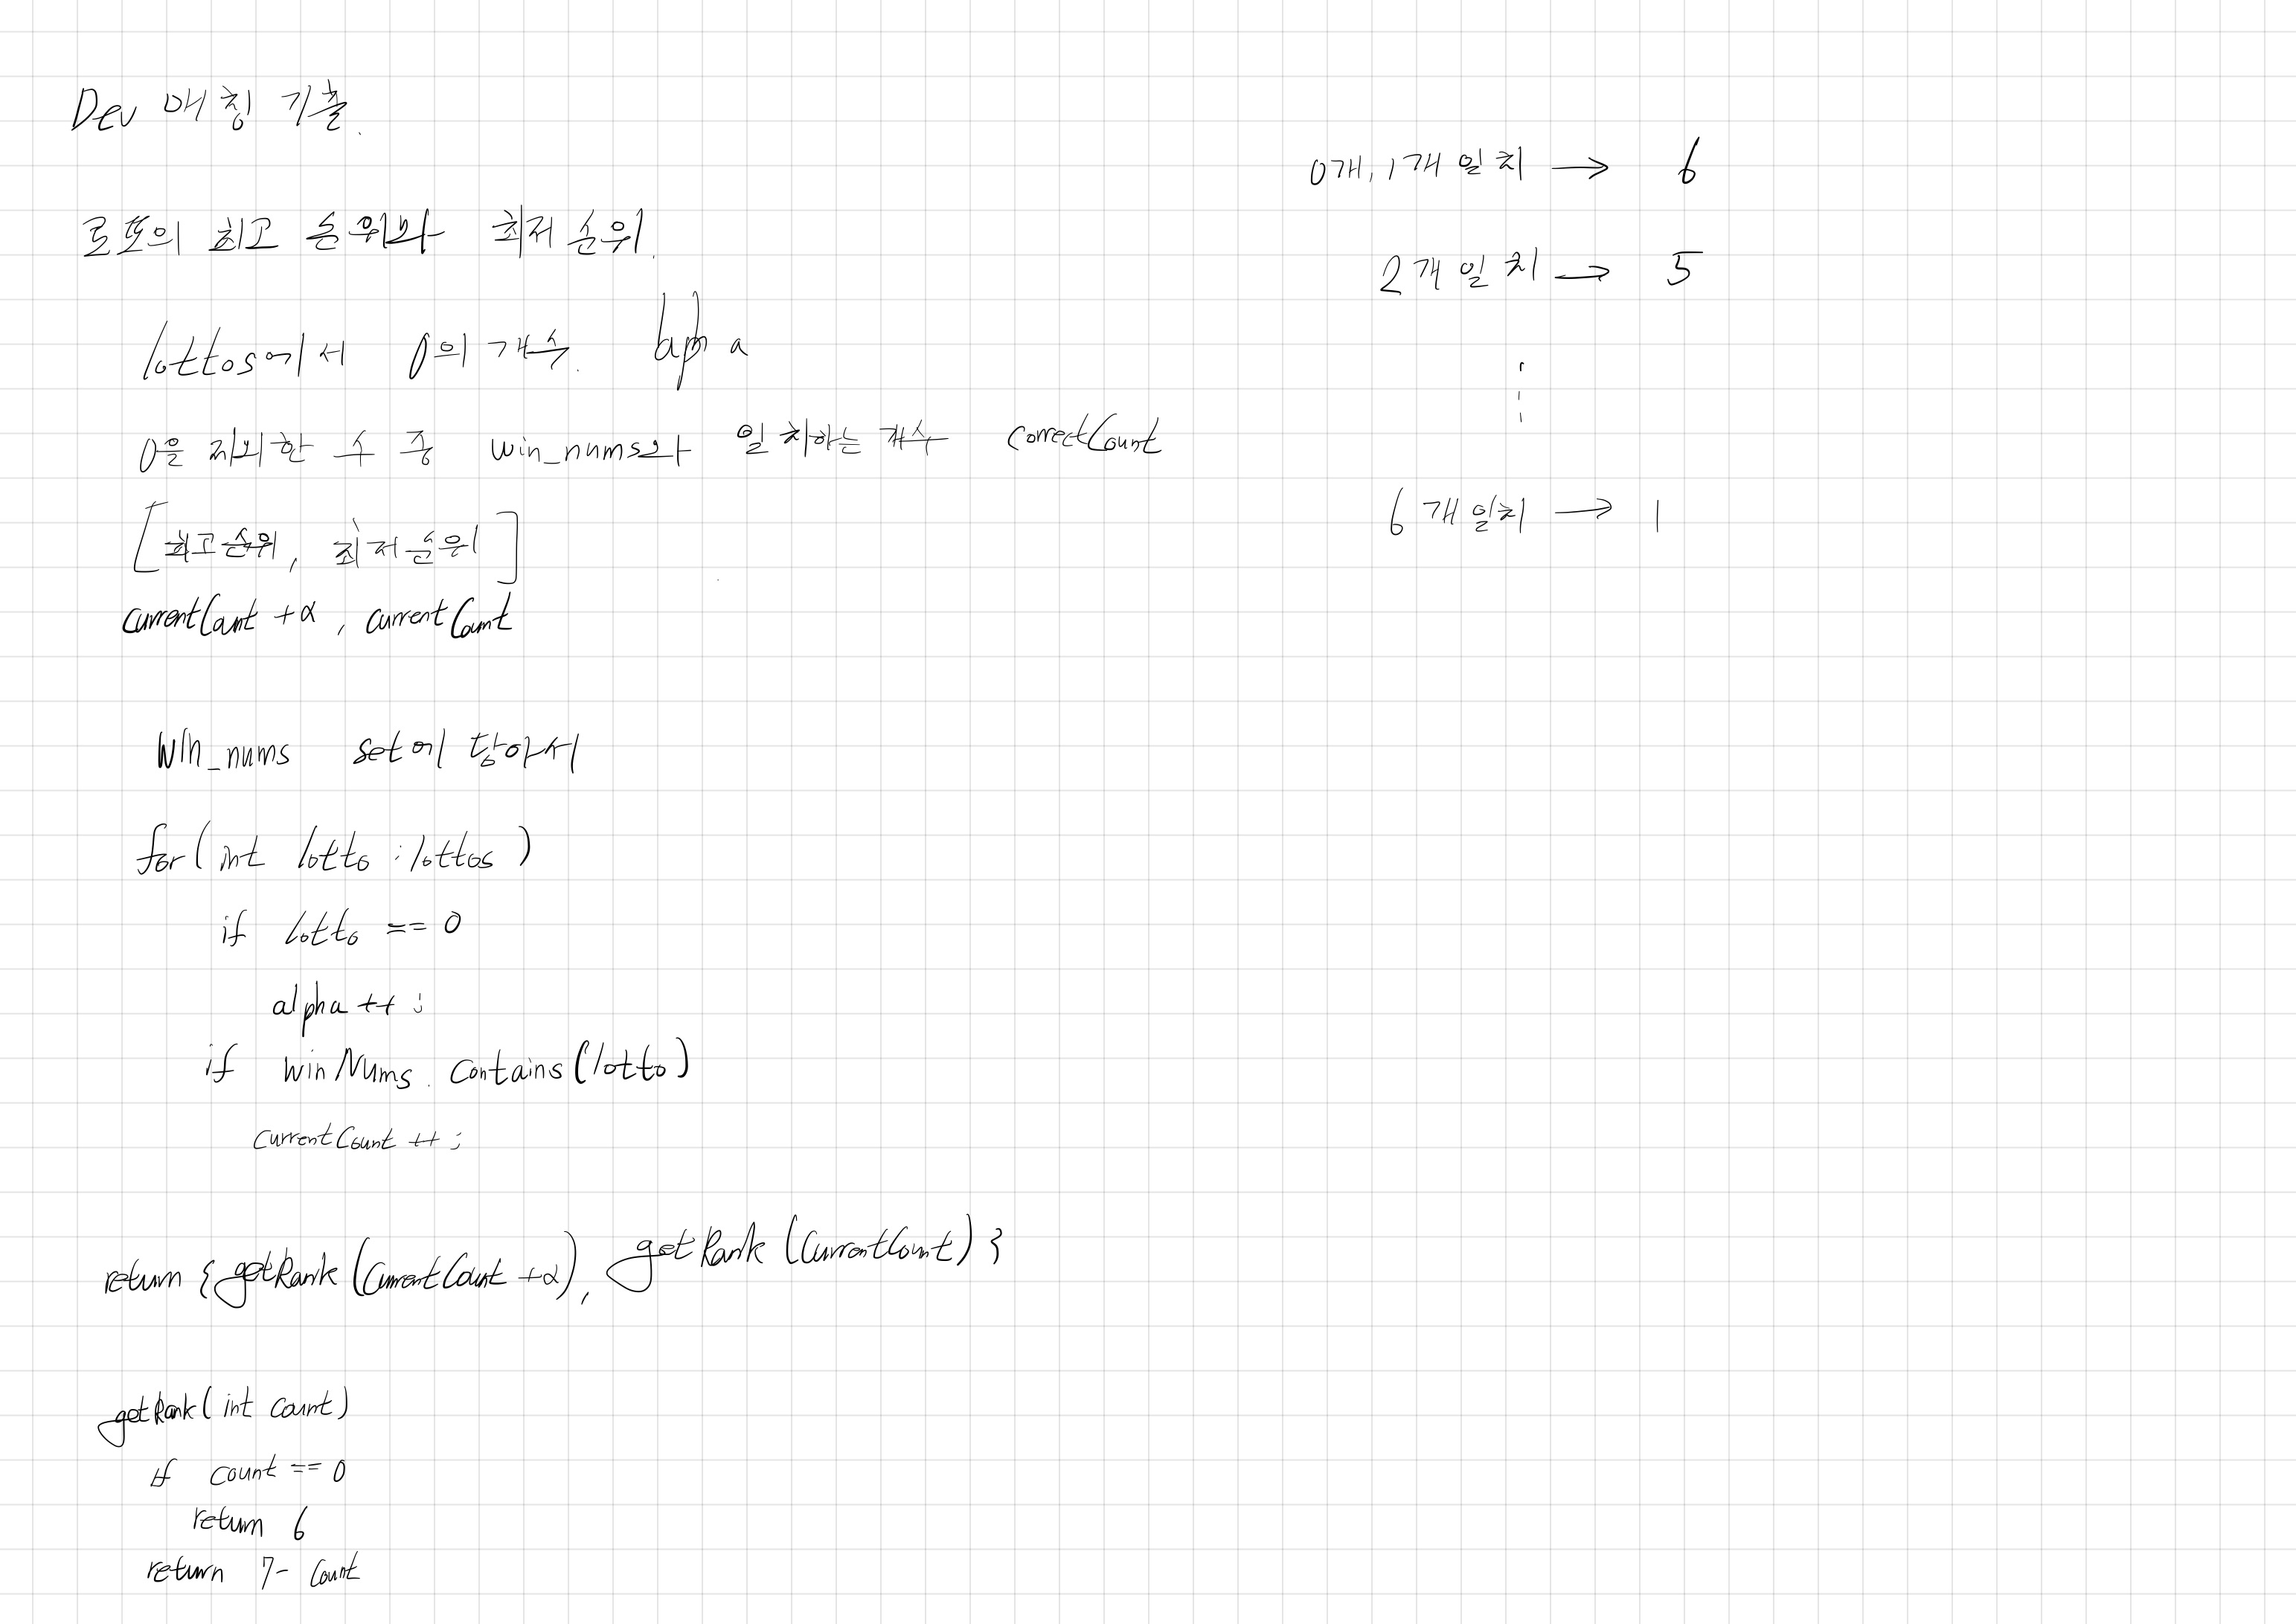 Dev 매칭 기출.
로또의 최고 순위와 최저 순위.
lottos에서 0의 개수. alpha
0을 제외한 수 중 win_nums와 일치하는 개수 correctCount
[최고순위, 최저순위]
currentCount +α, currentCount
win_nums set에 담아서
for(int lotto : lottos)
if lotto == 0
alpha++;
if winNums.contains(lotto)
currentCount++;
return {getRank(currentCount +α), getRank(currentCount)}
getRank(int count)
if count == 0
return 6
return 7- count
0개, 1개 일치 → 6
2개 일치 → 5
⋮
6개 일치 → 1